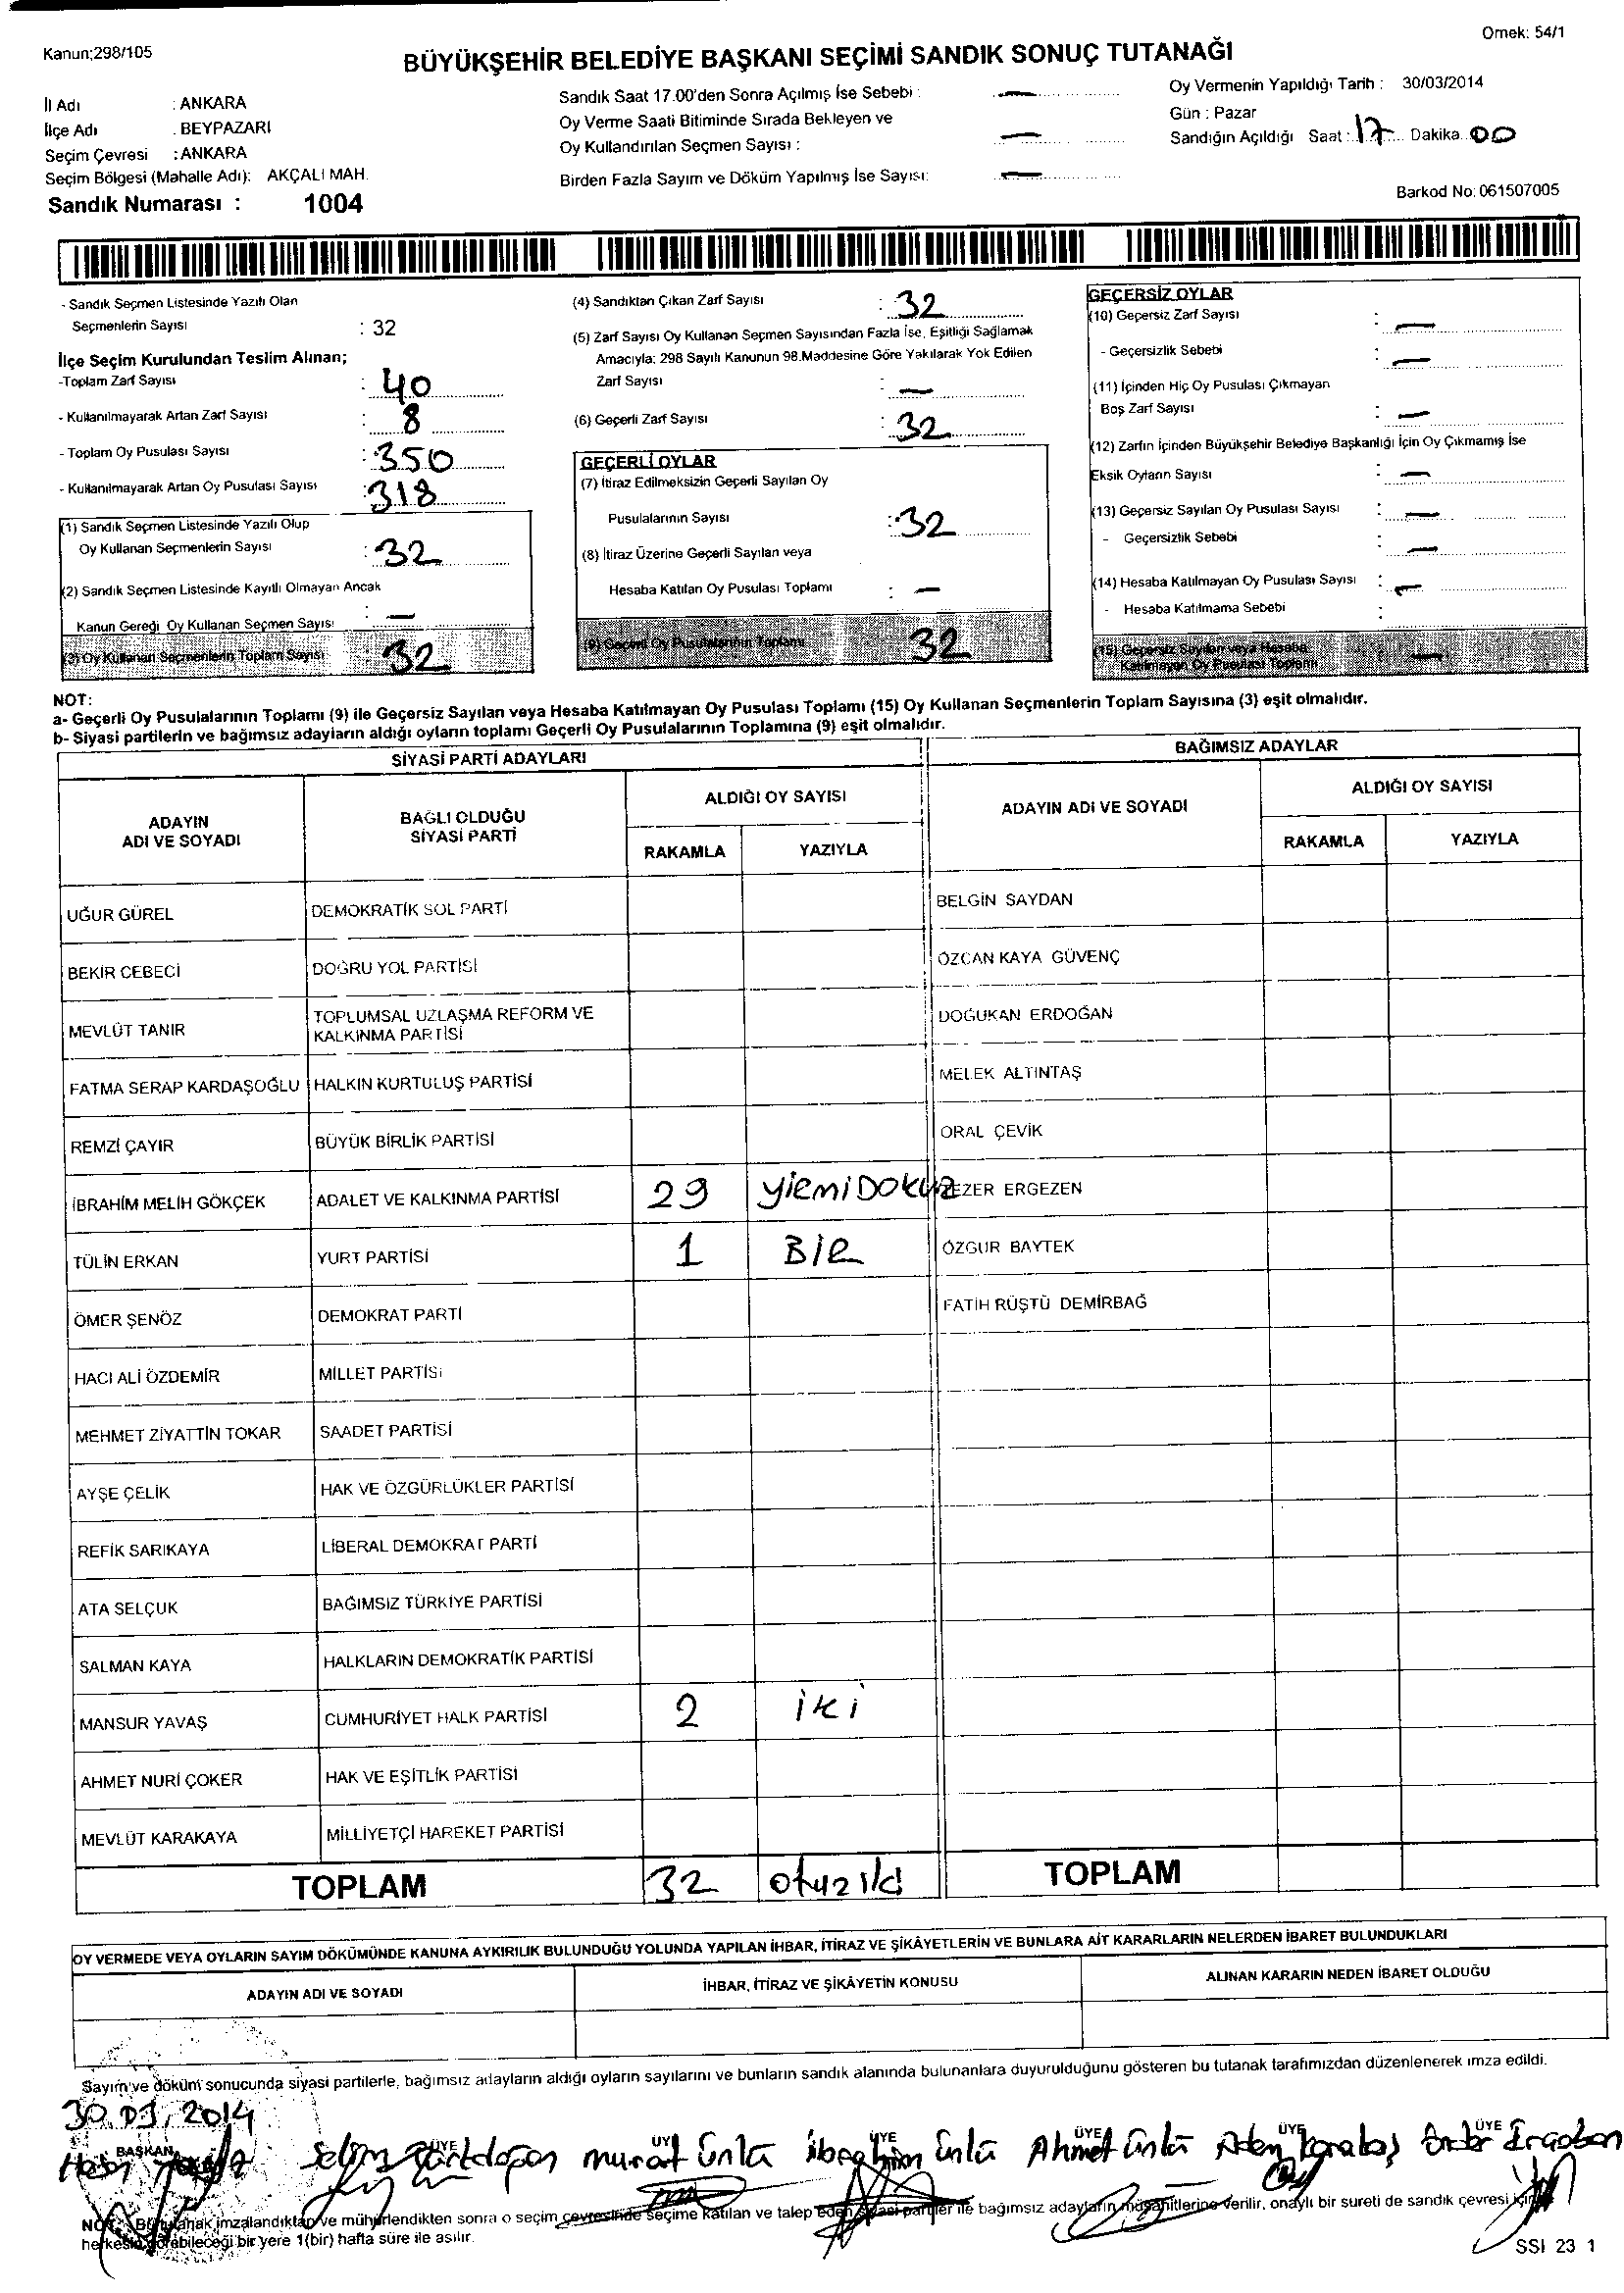 Kanun;298/105
Örnek: 54/1
BÜYÜKŞEHİR BELEDİYE BAŞKANI SEÇİMİ SANDIK SONUÇ TUTANAĞI
İl Adı : ANKARA
İlçe Adı : BEYPAZARI
Seçim Çevresi : ANKARA
Seçim Bölgesi (Mahalle Adı): AKÇALI MAH.
Sandık Numarası : 1004
Sandık Saat 17.00'den Sonra Açılmış İse Sebebi : —
Oy Verme Saati Bitiminde Sırada Bekleyen ve
Oy Kullandırılan Seçmen Sayısı : —
Birden Fazla Sayım ve Döküm Yapılmış İse Sayısı: —
Oy Vermenin Yapıldığı Tarih : 30/03/2014
Gün : Pazar
Sandığın Açıldığı Saat : 17 Dakika 00
Barkod No: 061507005
- Sandık Seçmen Listesinde Yazılı Olan
Seçmenlerin Sayısı : 32
İlçe Seçim Kurulundan Teslim Alınan;
-Toplam Zarf Sayısı : 40
- Kullanılmayarak Artan Zarf Sayısı : 8
- Toplam Oy Pusulası Sayısı : 350
- Kullanılmayarak Artan Oy Pusulası Sayısı : 318
(1) Sandık Seçmen Listesinde Yazılı Olup
Oy Kullanan Seçmenlerin Sayısı : 32
(2) Sandık Seçmen Listesinde Kayıtlı Olmayan Ancak
Kanun Gereği Oy Kullanan Seçmen Sayısı : —
(3) Oy Kullanan Seçmenlerin Toplam Sayısı : 32
(4) Sandıktan Çıkan Zarf Sayısı : 32
(5) Zarf Sayısı Oy Kullanan Seçmen Sayısından Fazla İse, Eşitliği Sağlamak
Amacıyla: 298 Sayılı Kanunun 98.Maddesine Göre Yakılarak Yok Edilen
Zarf Sayısı : —
(6) Geçerli Zarf Sayısı : 32
GEÇERLİ OYLAR
(7) İtiraz Edilmeksizin Geçerli Sayılan Oy
Pusulalarının Sayısı : 32
(8) İtiraz Üzerine Geçerli Sayılan veya
Hesaba Katılan Oy Pusulası Toplamı : —
(9) Geçerli Oy Pusulalarının Toplamı 32
GEÇERSİZ OYLAR
(10) Geçersiz Zarf Sayısı : —
- Geçersizlik Sebebi : —
(11) İçinden Hiç Oy Pusulası Çıkmayan
Boş Zarf Sayısı : —
(12) Zarfın İçinden Büyükşehir Belediye Başkanlığı İçin Oy Çıkmamış İse
Eksik Oyların Sayısı : —
(13) Geçersiz Sayılan Oy Pusulası Sayısı : —
- Geçersizlik Sebebi : —
(14) Hesaba Katılmayan Oy Pusulası Sayısı : —
- Hesaba Katılmama Sebebi :
(15) Geçersiz Sayılan veya Hesaba
Katılmayan Oy Pusulası Toplamı —
NOT:
a- Geçerli Oy Pusulalarının Toplamı (9) ile Geçersiz Sayılan veya Hesaba Katılmayan Oy Pusulası Toplamı (15) Oy Kullanan Seçmenlerin Toplam Sayısına (3) eşit olmalıdır.
b- Siyasi partilerin ve bağımsız adayların aldığı oyların toplamı Geçerli Oy Pusulalarının Toplamına (9) eşit olmalıdır.
SİYASİ PARTİ ADAYLARI
BAĞIMSIZ ADAYLAR
ADAYIN
ADI VE SOYADI
BAĞLI OLDUĞU
SİYASİ PARTİ
ALDIĞI OY SAYISI
RAKAMLA YAZIYLA
ADAYIN ADI VE SOYADI
ALDIĞI OY SAYISI
RAKAMLA YAZIYLA
UĞUR GÜREL DEMOKRATİK SOL PARTİ BELGİN SAYDAN
BEKİR CEBECİ DOĞRU YOL PARTİSİ ÖZCAN KAYA GÜVENÇ
MEVLÜT TANIR TOPLUMSAL UZLAŞMA REFORM VE
KALKINMA PARTİSİ DOĞUKAN ERDOĞAN
FATMA SERAP KARDAŞOĞLU HALKIN KURTULUŞ PARTİSİ MELEK ALTINTAŞ
REMZİ ÇAYIR BÜYÜK BİRLİK PARTİSİ ORAL ÇEVİK
İBRAHİM MELİH GÖKÇEK ADALET VE KALKINMA PARTİSİ 29 yiRmiDokuz EZER ERGEZEN
TÜLİN ERKAN YURT PARTİSİ 1 BİR ÖZGÜR BAYTEK
ÖMER ŞENÖZ DEMOKRAT PARTİ FATİH RÜŞTÜ DEMİRBAĞ
HACI ALİ ÖZDEMİR MİLLET PARTİSİ
MEHMET ZİYATTİN TOKAR SAADET PARTİSİ
AYŞE ÇELİK HAK VE ÖZGÜRLÜKLER PARTİSİ
REFİK SARIKAYA LİBERAL DEMOKRAT PARTİ
ATA SELÇUK BAĞIMSIZ TÜRKİYE PARTİSİ
SALMAN KAYA HALKLARIN DEMOKRATİK PARTİSİ
MANSUR YAVAŞ CUMHURİYET HALK PARTİSİ 2 iki
AHMET NURİ ÇOKER HAK VE EŞİTLİK PARTİSİ
MEVLÜT KARAKAYA MİLLİYETÇİ HAREKET PARTİSİ
TOPLAM 32 otuziki TOPLAM
OY VERMEDE VEYA OYLARIN SAYIM DÖKÜMÜNDE KANUNA AYKIRILIK BULUNDUĞU YOLUNDA YAPILAN İHBAR, İTİRAZ VE ŞİKÂYETLERİN VE BUNLARA AİT KARARLARIN NELERDEN İBARET BULUNDUKLARI
ADAYIN ADI VE SOYADI İHBAR, İTİRAZ VE ŞİKÂYETİN KONUSU ALINAN KARARIN NEDEN İBARET OLDUĞU
Sayım ve döküm sonucunda siyasi partilerle, bağımsız adayların aldığı oyların sayılarını ve bunların sandık alanında bulunanlara duyurulduğunu gösteren bu tutanak tarafımızdan düzenlenerek imza edildi.
30.03.2014
BAŞKAN ÜYE ÜYE ÜYE ÜYE ÜYE ÜYE
Selim murat ünlü ibrahim ünlü Ahmet ünlü Adem karabaş Önder
NOT: Bu tutanak imzalandıktan ve mühürlendikten sonra o seçim çevresinde seçime katılan ve talep eden siyasi partiler ile bağımsız adayların müşahitlerine verilir, onaylı bir sureti de sandık çevresi için
herkesin görebileceği bir yere 1(bir) hafta süre ile asılır.
SSI 23 1